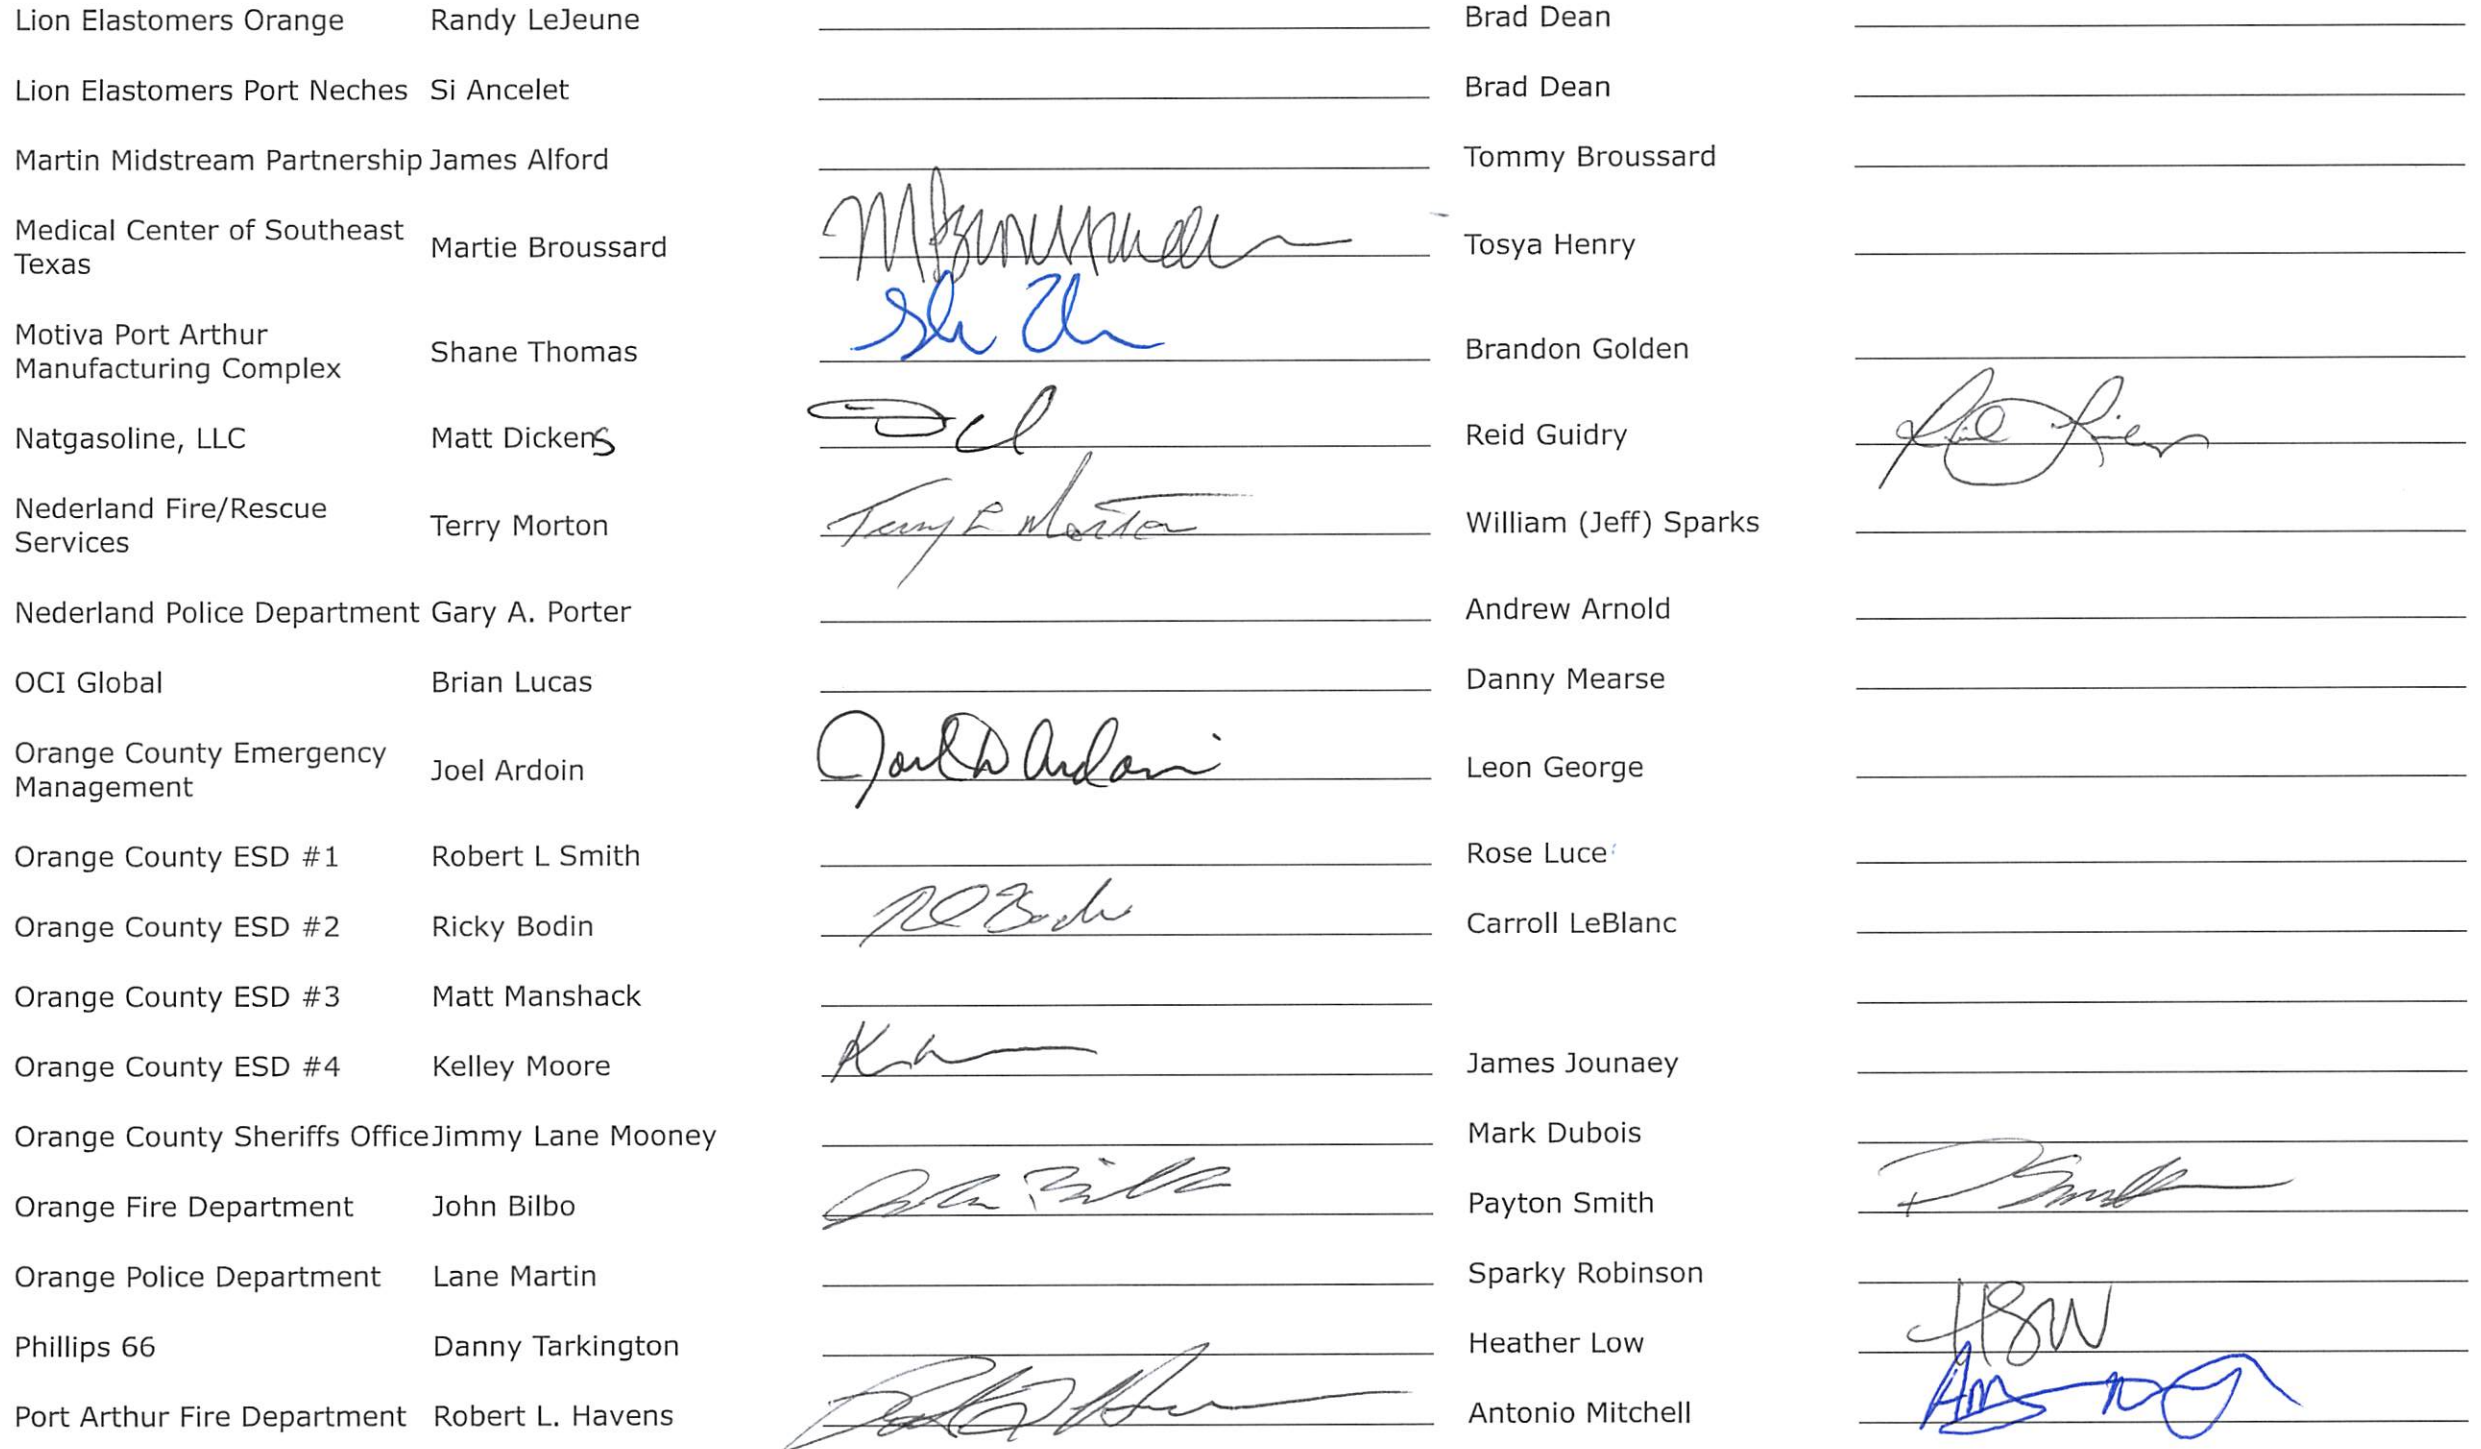 Lion Elastomers Orange Randy LeJeune Brad Dean
Lion Elastomers Port Neches Si Ancelet Brad Dean
Martin Midstream Partnership James Alford Tommy Broussard
Medical Center of Southeast
Texas Martie Broussard Tosya Henry
Motiva Port Arthur
Manufacturing Complex Shane Thomas Brandon Golden
Natgasoline, LLC Matt Dickens Reid Guidry
Nederland Fire/Rescue
Services Terry Morton Terry L Morton William (Jeff) Sparks
Nederland Police Department Gary A. Porter Andrew Arnold
OCI Global Brian Lucas Danny Mearse
Orange County Emergency
Management Joel Ardoin Joel D Ardoin Leon George
Orange County ESD #1 Robert L Smith Rose Luce
Orange County ESD #2 Ricky Bodin Carroll LeBlanc
Orange County ESD #3 Matt Manshack
Orange County ESD #4 Kelley Moore James Jounaey
Orange County Sheriffs Office Jimmy Lane Mooney Mark Dubois
Orange Fire Department John Bilbo John Bilbo Payton Smith
Orange Police Department Lane Martin Sparky Robinson
Phillips 66 Danny Tarkington Heather Low
Port Arthur Fire Department Robert L. Havens Antonio Mitchell